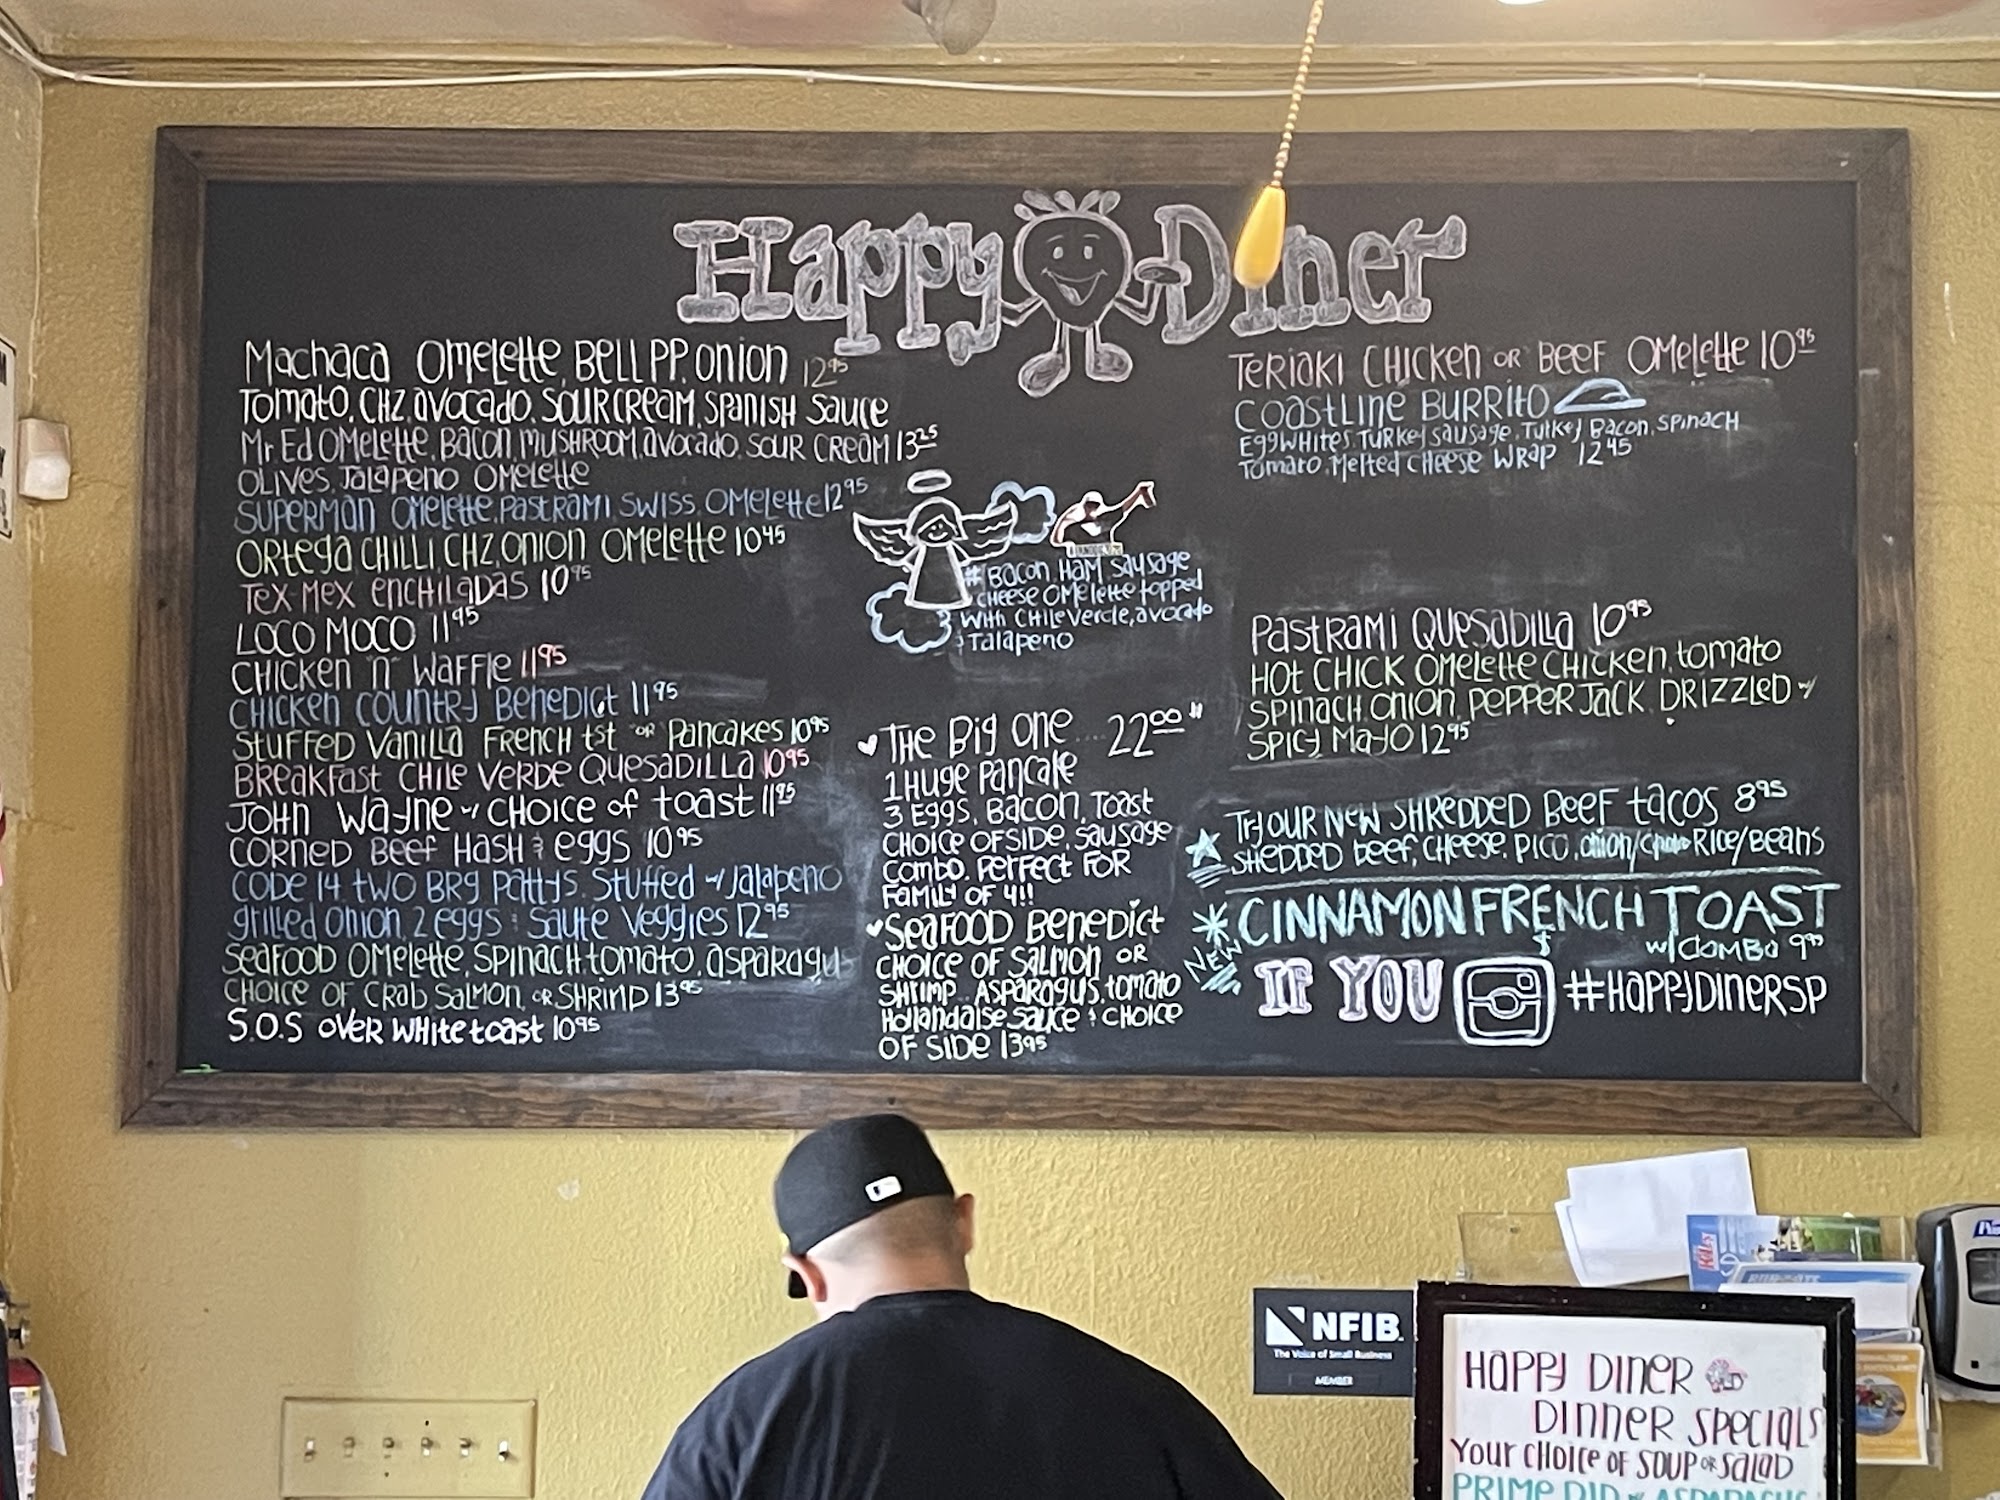 Happy Diner
Machaca Omelette, Bell PP, Onion 12 95
Tomato, CHZ, avocado, Sour cream, Spanish Sauce
Mr Ed Omelette, Bacon, mushroom, avocado, Sour Cream 13 25
Olives, Jalapeno Omelette
Superman Omelette, Pastrami Swiss Omelette 12 95
Ortega Chilli, CHZ, Onion Omelette 10 45
Tex Mex Enchiladas 10 95
Loco Moco 11 95
Chicken "n" Waffle 11 95
Chicken Country Benedict 11 95
Stuffed Vanilla French tst "or" Pancakes 10 95
Breakfast Chile Verde Quesadilla 10 95
John Wayne w/ Choice of toast 11 95
Corned Beef Hash & eggs 10 95
Code 14 two BRG Pattys, Stuffed w/ Jalapeno
grilled onion, 2 eggs & Saute Veggies 12 95
Seafood Omelette, Spinach, tomato, asparagus
Choice of, Crab Salmon, or Shrimp 13 95
S.O.S over white toast 10 95
# Bacon, Ham, Sausage
cheese Omelette topped
with Chile Verde, avocado
& Jalapeno
The Big One ... 22 00
1 Huge Pancake
3 Eggs, Bacon, Toast
Choice of Side, Sausage
Combo. Perfect for
Family of 4!!
Seafood Benedict
Choice of Salmon or
Shrimp.. Asparagus, tomato
Hollandaise Sauce & Choice
of Side 13 95
Teriaki Chicken or Beef Omelette 10 95
Coastline Burrito
Eggwhites, Turkey Sausage, Turkey Bacon, Spinach
Tomato, Melted Cheese Wrap 12 45
Pastrami Quesadilla 10 95
Hot Chick Omelette Chicken, tomato
Spinach, onion, pepper Jack, Drizzled w/
Spicy Mayo 12 95
Try our New Shredded Beef tacos 8 95
Shedded beef, Cheese, Pico, onion/ Rice/Beans
New
Cinnamon French Toast
w/ Combo 9 95
If You #HappyDinerSP
NFIB
The Voice of Small Business
MEMBER
Happy Diner
Dinner Specials
Your Choice of Soup or Salad